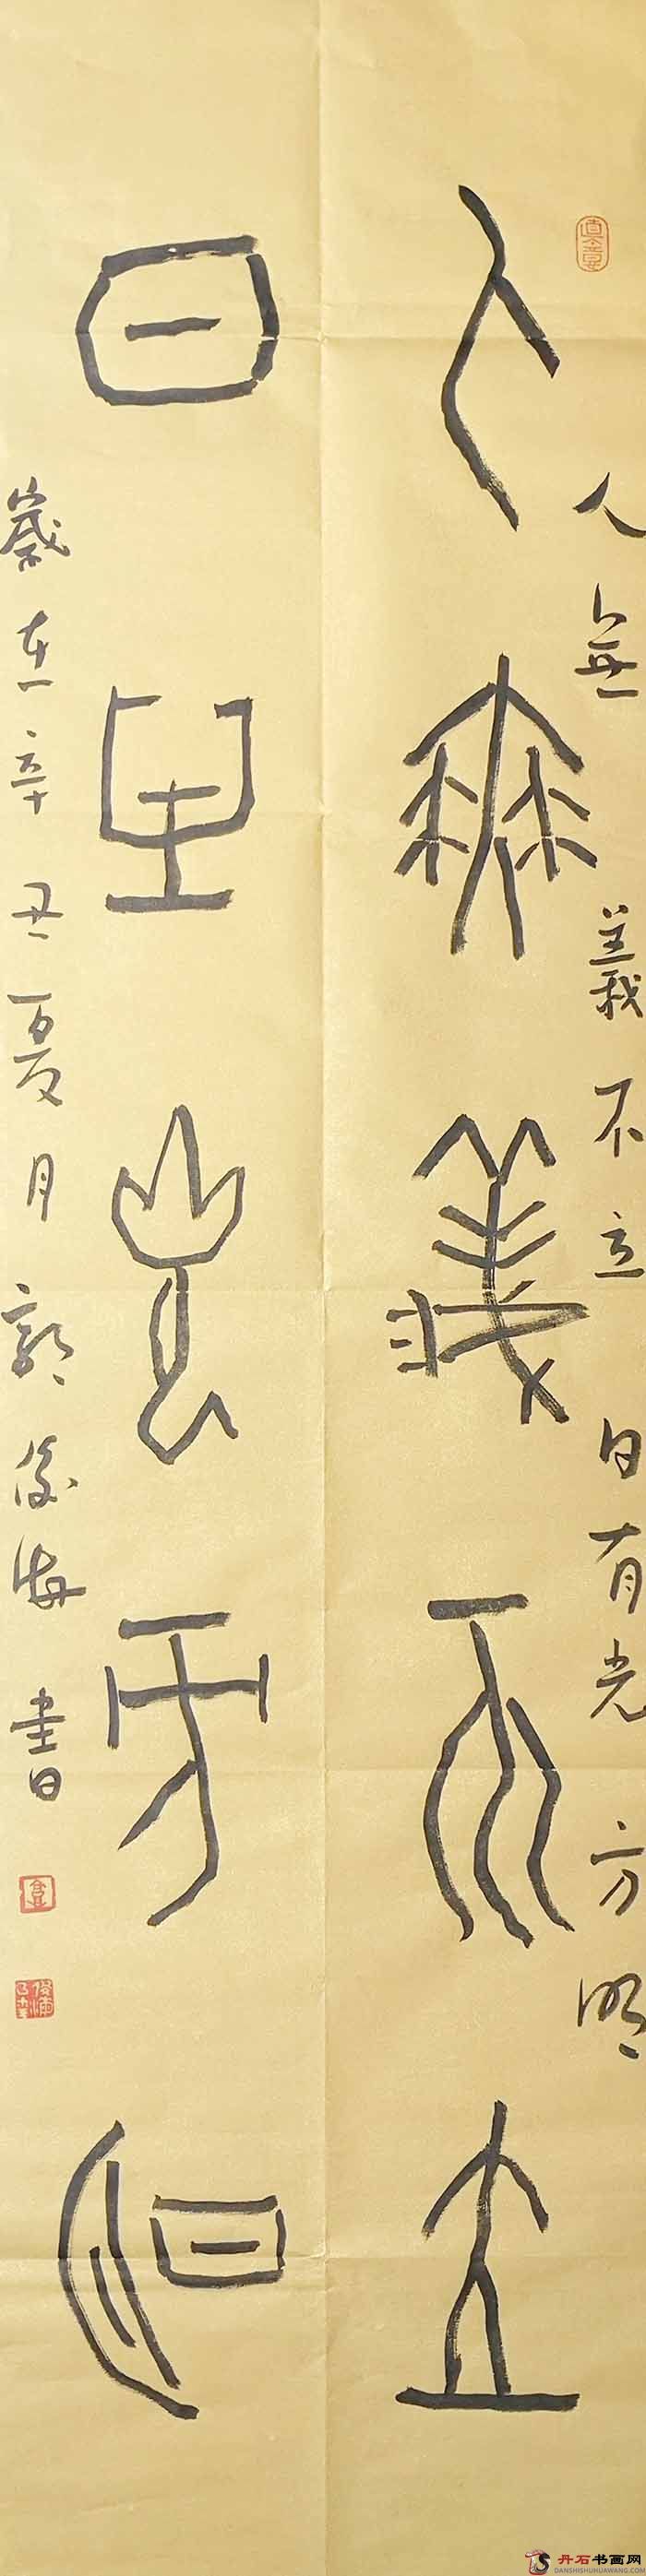 人無義不立日有光方明
人無義不立
日有光方明
歲在辛丑夏月郭俊海書
丹石书画网
DANSHISHUHUAWANG.COM